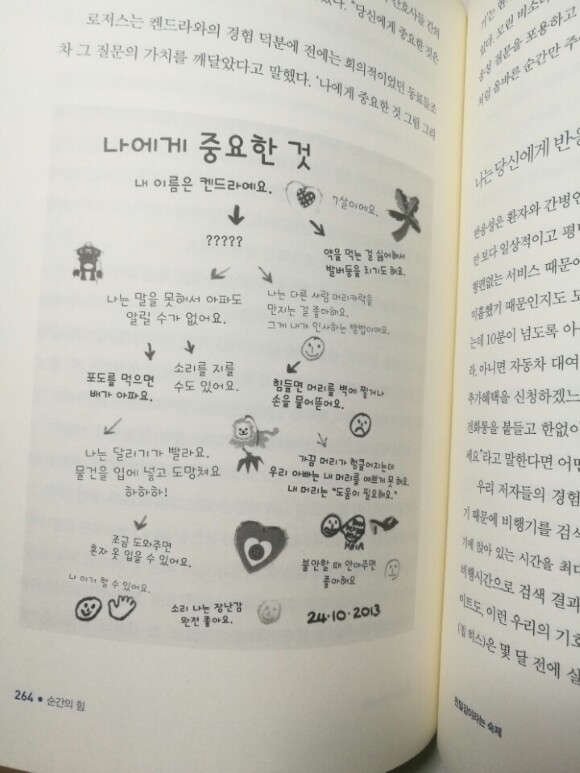 간호사들 간의
다. "당신에게 중요한 것은
로저스는 켄드라와의 경험 덕분에 전에는 회의적이었던 동료들조
차 그 질문의 가치를 깨달았다고 말했다. '나에게 중요한 것 그림 그리
나에게 중요한 것
내 이름은 켄드라예요.
7살이에요.
?????
약을 먹는 걸 싫어해서
발버둥을 치기도 해요.
나는 말을 못해서 아파도
알릴 수가 없어요.
나는 다른 사람 머리카락을
만지는 걸 좋아해요.
그게 내가 인사하는 방법이에요.
포도를 먹으면
배가 아파요.
소리를 지를
수도 있어요.
힘들면 머리를 벽에 찧거나
손을 물어뜯어요.
나는 달리기가 빨라요.
물건을 입에 넣고 도망쳐요
하하하!
가끔 머리가 헝클어지는데
우리 아빠는 내 머리를 예쁘게 못 해요.
내 머리는 "도움이 필요해요."
조금 도와주면
혼자 옷 입을 수 있어요.
불안할 때 안아주면
좋아해요
나 이거 할 수 있어요.
소리 나는 장난감
완전 좋아요.
24·10·2013
264 • 순간의 힘
나는 당신에게 반응
반응성은 환자와 간병인
만 보다 일상적이고 평
형편없는 서비스 때문에
미흡했기 때문인지도 모
는데 10분이 넘도록 아
라. 아니면 자동차 대여
추가혜택을 신청하겠느
전화통을 붙들고 한없이
세요"라고 말한다면 어떤
우리 저자들의 경험
기 때문에 비행기를 검색
기에 앉아 있는 시간을 최대
비행시간으로 검색 결과
이트도, 이런 우리의 기호
(칩 히스)은 몇 달 전에 실
친밀감이라는 숙제